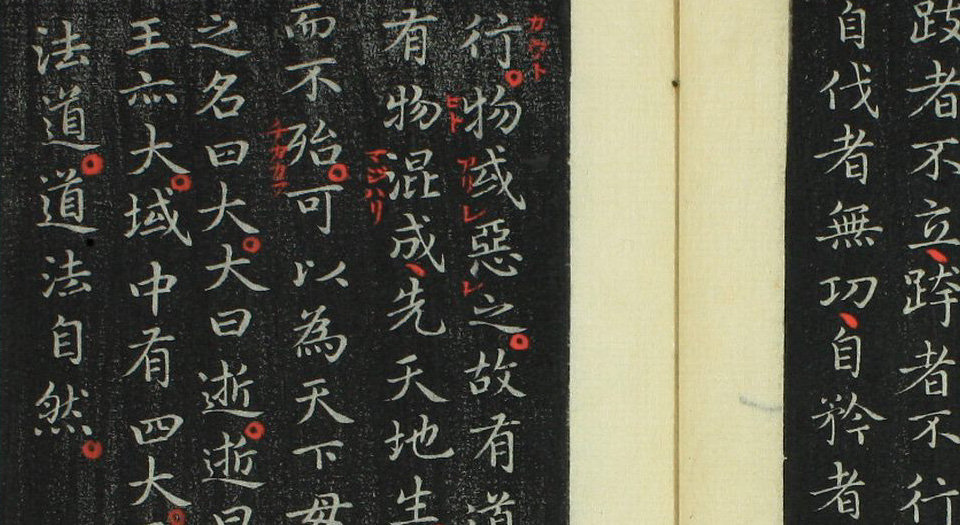 跂者不立、跨者不行
自伐者無功、自矜者
行。物或惡之。故有道
ヒト
アリ
レ
レ
有物混成、先天地生
マジハリ
而不殆。可以為天下母
之名曰大。大曰逝。逝曰
王亦大。域中有四大。
法道。道法自然。